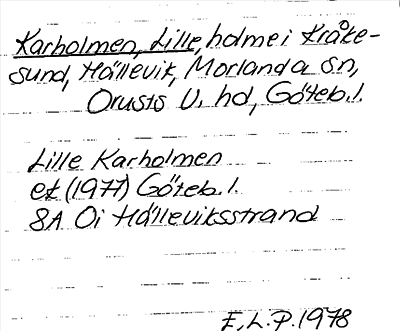 Karholmen, Lille, holme i Kråke-
sund, Hällevik, Morlanda sn,
Orusts V. hd, Göteb. l.
Lille Karholmen
ek (1977) Göteb. l.
8A 0i Hälleviksstrand
E.L.P. 1978